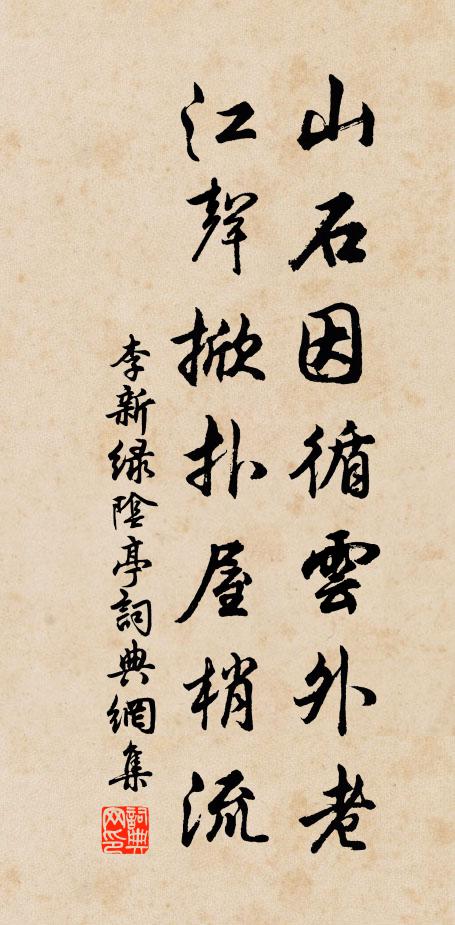 山石因循雲外老
江聲掀扑屋梢流
李新綠陰亭詞典網集
詞典
网印